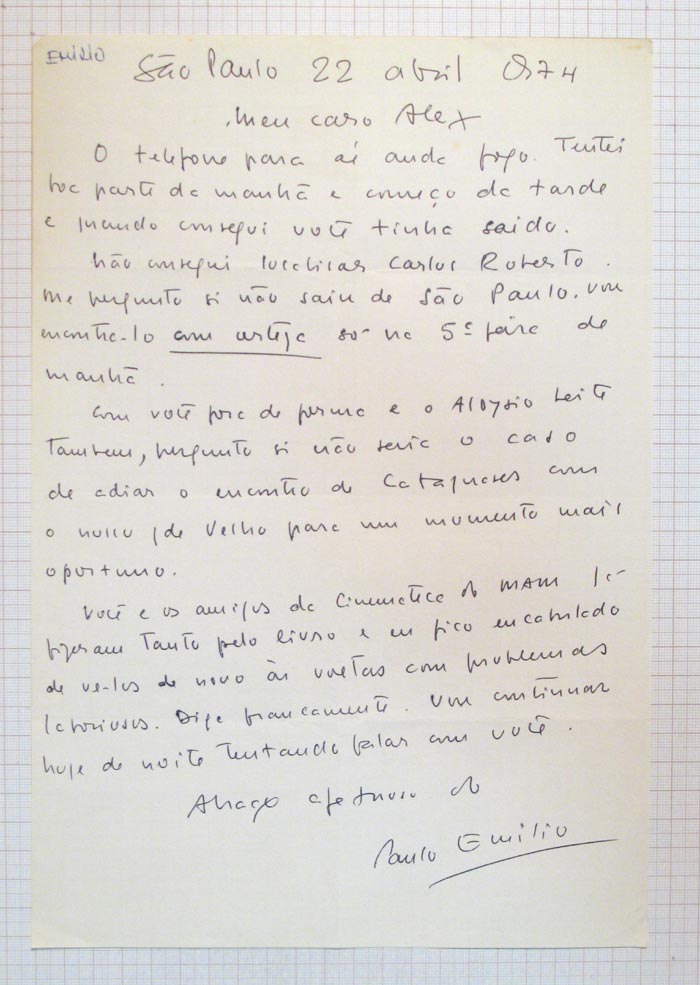 EMILIO
São Paulo 22 abril 974
Meu caro Alex
O telefone para aí anda fogo. Tentei
boa parte da manhã e começo da tarde
e quando consegui você tinha saido.
Não consegui localisar Carlos Roberto.
Me pergunto si não saiu de São Paulo. Vou
encontra-lo com certeza só na 5ª feira de
manhã.
Com você fora de forma e o Aloysio Leite
tambem, pergunto si não seria o caso
de adiar o encontro de Cataguases com
o nosso de Velho para um momento mais
oportuno.
Você e os amigos da Cinemateca do MAM já
fizeram tanto pelo livro e eu fico encabulado
de ve-los de novo às voltas com problemas
laboriosos. Diga francamente. Vou continuar
hoje de noite tentando falar com você.
Abraço afetuoso do
Paulo Emilio